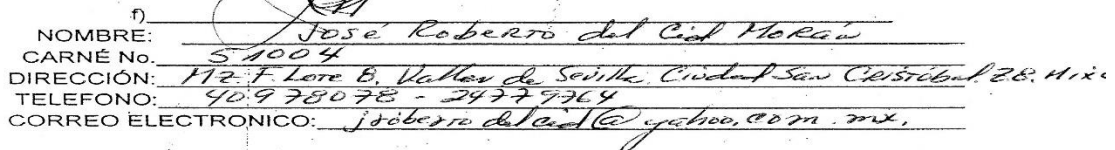 f)
NOMBRE: José Roberto del Cid Morán
CARNÉ No. 51004
DIRECCIÓN: Mz F Lote 8. Valles de Sevilla. Ciudad San Cristóbal Z8. Mixco
TELEFONO: 40978078 - 24779764
CORREO ELECTRONICO: jroberto delcid@yahoo.com.mx.